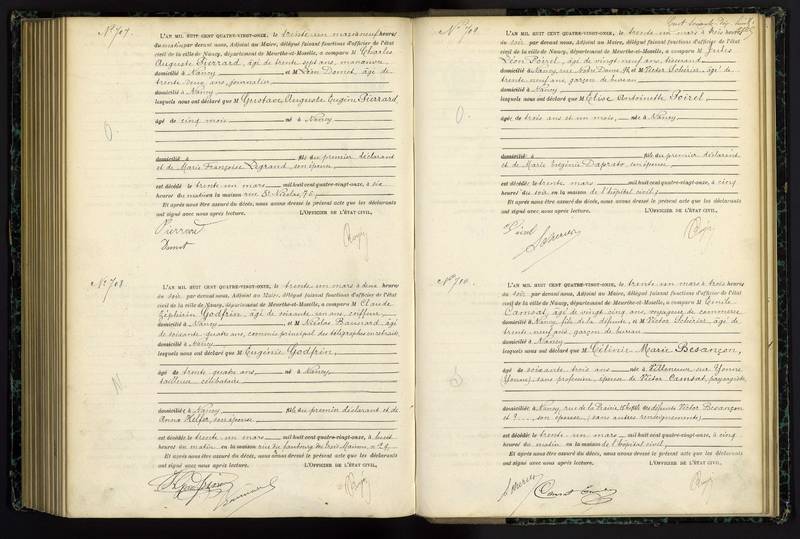 N° 707.
L'AN MIL HUIT CENT QUATRE-VINGT-ONZE, le trente un mars à neuf heures
du matin par devant nous, Adjoint au Maire, délégué faisant fonctions d'officier de l'état
civil de la ville de Nancy, département de Meurthe-et-Moselle, a comparu M Charles
Auguste Pierrard, âgé de trente sept ans, manœuvre
domicilié à Nancy et M Léon Domet, âgé de
trente deux ans, journalier
domicilié à Nancy
lesquels nous ont déclaré que M Gustave Auguste Eugène Pierrard
âgé de cinq mois né à Nancy
domicilié à fils du premier déclarant
et de Marie Françoise Legrand, son épouse
est décédé le trente un mars mil huit cent quatre-vingt-onze, à six
heures du matin en la maison rue St Nicolas, 75.
Et après nous être assuré du décès, nous avons dressé le présent acte que les déclarants
ont signé avec nous après lecture. L'OFFICIER DE L'ÉTAT CIVIL,
Pierrard
N° 708.
L'AN MIL HUIT CENT QUATRE-VINGT-ONZE, le trente un mars à deux heures
du soir par devant nous, Adjoint au Maire, délégué faisant fonctions d'officier de l'état
civil de la ville de Nancy, département de Meurthe-et-Moselle, a comparu M Claude
Zéphirin Godfrin, âgé de soixante un ans, coiffeur
domicilié à Nancy et M Nicolas Baunard, âgé
de soixante quatre ans, commis principal des télégraphes en retraite
domicilié à Nancy
lesquels nous ont déclaré que M Eugénie Godfrin,
âgé de trente quatre ans, né à Nancy,
tailleuse célibataire
domicilié à Nancy fille du premier déclarant et de
Anna Helfer, son épouse
est décédé le trente un mars mil huit cent quatre-vingt-onze, à huit
heures du matin en la maison rue du faubourg des trois Maisons, n° 24
Et après nous être assuré du décès, nous avons dressé le présent acte que les déclarants
ont signé avec nous après lecture. L'OFFICIER DE L'ÉTAT CIVIL,
Godfrin
N° 709.
L'AN MIL HUIT CENT QUATRE-VINGT-ONZE, le trente un mars à trois heures
du soir par devant nous, Adjoint au Maire, délégué faisant fonctions d'officier de l'état
civil de la ville de Nancy, département de Meurthe-et-Moselle, a comparu M Jules
Léon Poirel, âgé de vingt neuf ans, tisserand
domicilié à Nancy, rue Notre Dame et M Victor Scherier, âgé de
trente neuf ans, garçon de bureau
domicilié à Nancy
lesquels nous ont déclaré que M Elise Antoinette Poirel,
âgée de trois ans et un mois, née à Nancy,
domicilié à fille du premier déclarant
et de Marie Eugénie Daprato, son épouse
est décédé le trente mars mil huit cent quatre-vingt-onze, à cinq
heures du soir en la maison de l'hôpital civil;
Et après nous être assuré du décès, nous avons dressé le présent acte que les déclarants
ont signé avec nous après lecture. L'OFFICIER DE L'ÉTAT CIVIL,
Poirel
Scherier
N° 710.
L'AN MIL HUIT CENT QUATRE-VINGT-ONZE, le trente un mars à trois heures
du soir par devant nous, Adjoint au Maire, délégué faisant fonctions d'officier de l'état
civil de la ville de Nancy, département de Meurthe-et-Moselle, a comparu M Emile
Camsat, âgé de vingt cinq ans, voyageur de commerce
domicilié à Nancy, fils de la défunte, et M Victor Scherier, âgé de
trente neuf ans, garçon de bureau
domicilié à Nancy
lesquels nous ont déclaré que M Célinie Marie Besançon,
âgé de soixante trois ans née à Villeneuve sur Yonne
(Yonne), sans profession, épouse de Victor Camsat, paysagiste,
domicilié à Nancy, rue de la Prairie, fille des défunts Victor Besançon
et ?..., son épouse, (sans autres renseignements)
est décédé le trente un mars mil huit cent quatre-vingt-onze, à cinq
heures du matin en la maison de l'hôpital civil
Et après nous être assuré du décès, nous avons dressé le présent acte que les déclarants
ont signé avec nous après lecture. L'OFFICIER DE L'ÉTAT CIVIL,
Scherier
Camsat